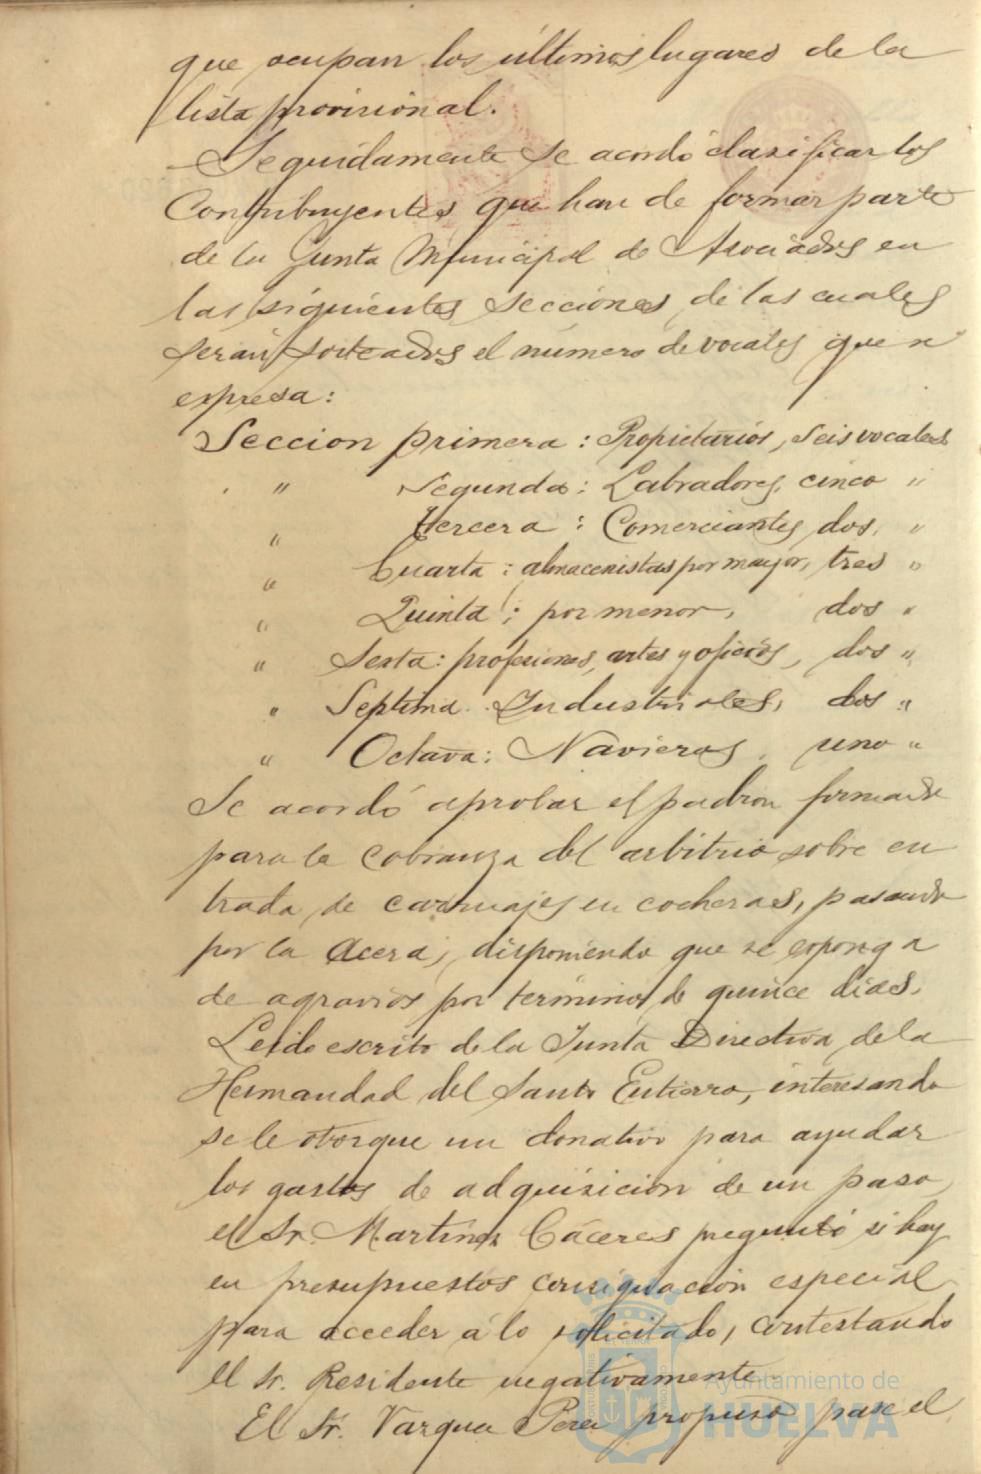 que ocupan los últimos lugares de la
lista provisional.
Seguidamente se acordó clasificar los
Contribuyentes que han de formar parte
de la Junta Municipal de Asociados en
las siguientes secciones, de las cuales
serán sorteados el número de vocales que se
expresa:
Seccion primera: Propietarios, seis vocales
" Segunda: Labradores, cinco "
" tercera: Comerciantes, dos, "
" Cuarta: almacenistas por mayor, tres "
" Quinta: por menor, dos "
" Sexta: profesiones, artes y oficios, dos "
" Septima. Industriales, dos "
" Octava: Navieros, uno "
Se acordó aprobar el padron formado
para la cobranza del arbitrio sobre en
trada de carruajes en cocheras, pasando
por la acera, disponiendo que se exponga
de agravios por término de quince dias.
Leido escrito de la Junta Directiva de la
Hermandad del Santo Entierro, interesando
se le otorgue un donativo para ayudar
los gastos de adquisicion de un paso,
el Sr. Martinez Cáceres preguntó si hay
en presupuestos consignación especial
para acceder á lo solicitado, contestando
el Sr. Presidente negativamente.
El Sr. Vargas Perez propuso pase el
Ayuntamiento de
HUELVA